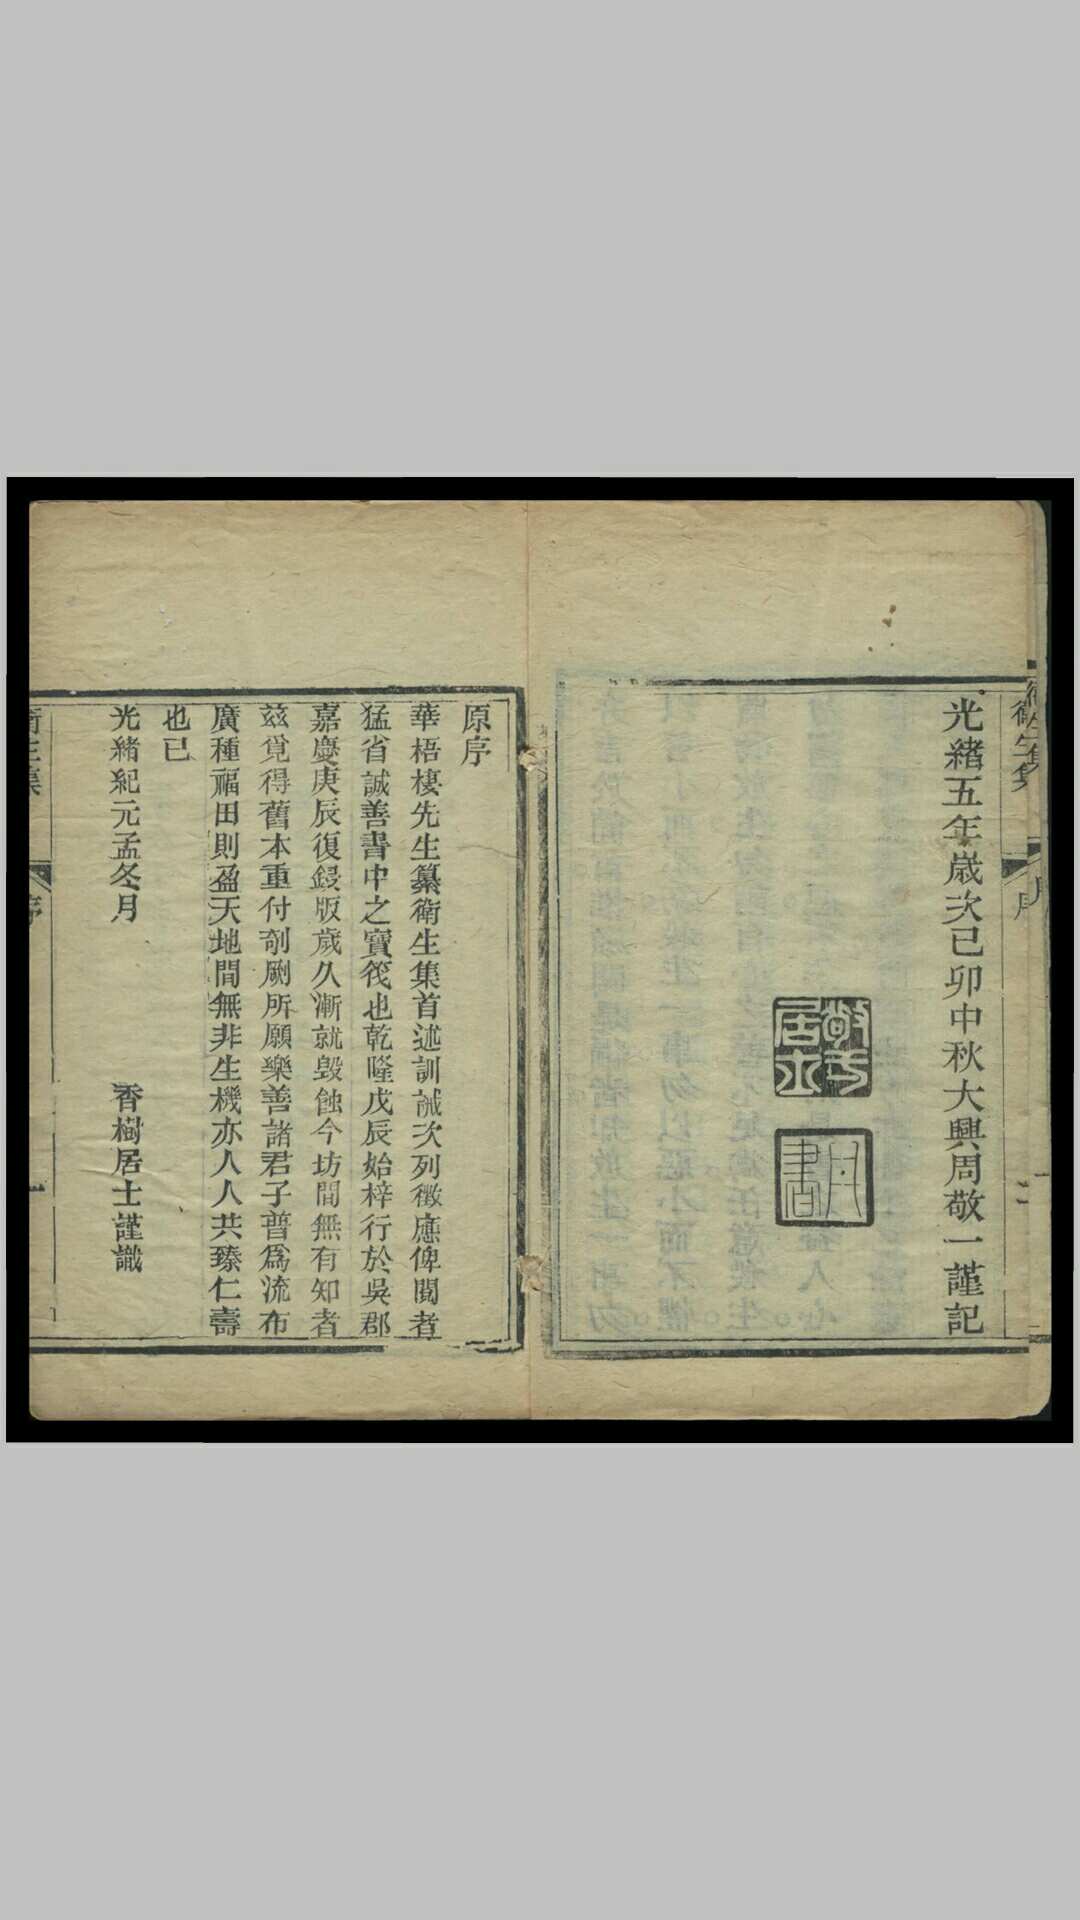 衛生集
序
光緒五年歲次己卯中秋大興周敬一謹記
原序
華梧棲先生纂衛生集首述訓誡次列徵應俾閱者
猛省誠善書中之寶筏也乾隆戊辰始梓行於吳郡
嘉慶庚辰復鋟版歲久漸就毀蝕今坊間無有知者
茲覓得舊本重付剞劂所願樂善諸君子普爲流布
廣種福田則盈天地間無非生機亦人人共臻仁壽
也已
光緒紀元孟冬月
香樹居士謹識
衛生集
序
一